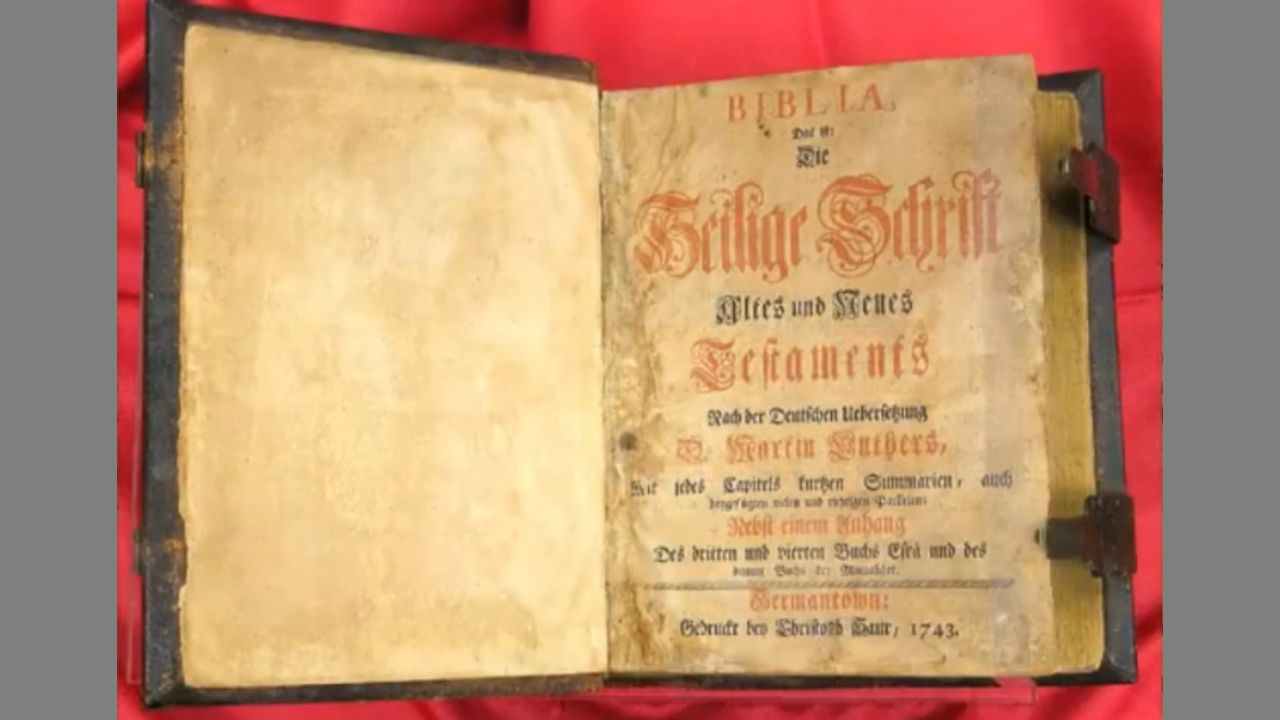 BIBLIA,
Das ist:
Die
Heilige Schrift
Altes und Neues
Testaments
Nach der Deutschen Uebersetzung
D. Martin Luthers,
Mit jedes Capitels kurtzen Summarien, auch
beygefügten vielen und richtigen Parllelen:
Nebst einem Anhang
Des dritten und vierten Buchs Esrä und des
dritten Buchs der Maccabäer.
Germantown:
Gedruckt bey Christoph Saur, 1743.